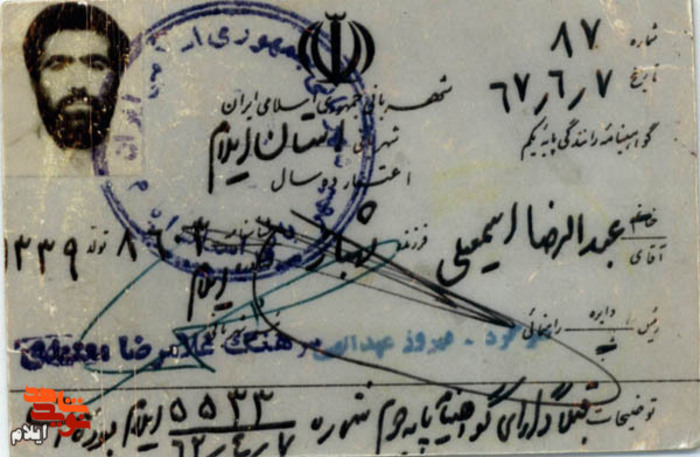 شماره ۸۷
تاریخ ۶۷٫۶٫۷
جمهوری
شهربانی جمهوری اسلامی ایران
گواهینامه رانندگی پایه یکم
شهربانی استان ایلام
اعتبار ده سال
خانم
آقای
عبدالرضا اسمعیلی
فرزند
تولد ۱۳۳۹
ایلام
رئیس دایره راهنمائی
سرهنگ غلامرضا
توضیحات قبلا دارای گواهینامه پایه دوم شماره ۵۵۳۳ ایلام بوده
۶۲٫۴٫۷
ایلام